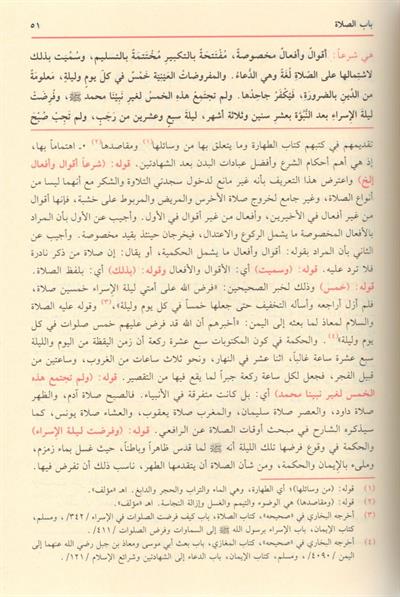 باب الصلاة ٥١
هي شرعاً: أقوالٌ وأفعالٌ مخصوصةٌ، مُفْتَتَحةٌ بالتكبيرِ مُخْتَتَمةٌ بالتسليمِ، وسُمِّيَت بذلك
لاشتمالها على الصَّلاةِ لُغَةً وهي الدُّعاءُ. والمفروضاتُ العَيْنيَّة خَمْسٌ في كلِّ يومٍ وليلةٍ، مَعلومةٌ
من الدِّينِ بالضرورَةِ، فيَكْفُرُ جاحدُها. ولم تجتمِعْ هذه الخمسُ لغيرِ نَبيِّنا محمد ﷺ، وفُرِضَتْ
ليلةَ الإسراءِ بعد النُّبوَّة بعشرِ سنين وثلاثةِ أشهر، ليلةَ سبعٍ وعشرين من رَجَبٍ، ولم تَجِبْ صُبْحُ
تقديمهم في كتبهم كتاب الطهارة وما يتعلق بها من وسائلها(١) ومقاصدها(٢) ٠ـ اهتماماً بها،
إذ هي أهم أحكام الشرع وأفضل عبادات البدن بعد الشهادتين. قوله: (شرعاً أقوال وأفعال
إلخ) واعترض هذا التعريف بأنه غير مانع لدخول سجدتي التلاوة والشكر مع أنهما ليسا من
أنواع الصلاة، وغير جامع لخروج صلاة الأخرس والمريض والمربوط على خشبة، فإنها أقوال
من غير أفعال في الأخيرين، وأفعال من غير أقوال في الأول. وأجيب عن الأول بأن المراد
بالأفعال المخصوصة ما يشمل الركوع والاعتدال، فيخرجان حينئذ بقيد مخصوصة. وأجيب عن
الثاني بأن المراد بقوله: أقوال وأفعال ما يشمل الحكمية، أو يقال: إن صلاة من ذكر نادرة
فلا ترد عليه. قوله: (وسميت) أي: الأقوال والأفعال وقوله: (بذلك) أي: بلفظ الصلاة.
قوله: (خمس) وذلك لخبر الصحيحين: «فرض الله على أمتي ليلة الإسراء خمسين صلاة،
فلم أزل أراجعه وأسأله التخفيف حتى جعلها خمساً في كل يوم وليلة»،(٣) وقوله عليه الصلاة
والسلام لمعاذ لما بعثه إلى اليمن: «أخبرهم أن الله قد فرض عليهم خمس صلوات في كل
يوم وليلة»(٤). والحكمة في كون المكتوبات سبع عشرة ركعة أن زمن اليقظة من اليوم والليلة
سبع عشرة ساعة غالباً، اثنا عشر في النهار، ونحو ثلاث ساعات من الغروب، وساعتين من
قبيل الفجر، فجعل لكل ساعة ركعة جبراً لما يقع فيها من التقصير. قوله: (ولم تجتمع هذه
الخمس لغير نبينا محمد) أي: بل كانت متفرقة في الأنبياء. فالصبح صلاة آدم، والظهر
صلاة داود، والعصر صلاة سليمان، والمغرب صلاة يعقوب، والعشاء صلاة يونس، كما
سيذكره الشارح في مبحث أوقات الصلاة عن الرافعي. قوله: (وفرضت ليلة الإسراء)
والحكمة في وقوع فرضها تلك الليلة أنه ﷺ لما قدس ظاهراً وباطناً، حيث غسل بماء زمزم،
وملىء بالإيمان والحكمة، ومن شأن الصلاة أن يتقدمها الطهر، ناسب ذلك أن تفرض فيها.
(١) قوله: (من وسائلها)؛ أي الطهارة، وهي الماء والتراب والحجر والدابغ. اهـ «مؤلف».
(٢) قوله: (ومقاصدها) هو الوضوء والتيمم والغسل وإزالة النجاسة. اهـ «مؤلف».
(٣) أخرجه البخاري في «صحيحه» كتاب الصلاة، باب كيف فرضت الصلوات في الإسراء /٣٤٢/، ومسلم،
كتاب الإيمان، باب الإسراء برسول الله ﷺ إلى السماوات وفرض الصلوات /٤١١/.
(٤) أخرجه البخاري في «صحيحه»، كتاب المغازي، باب بعث أبي موسى ومعاذ بن جبل رضي الله عنهما إلى
اليمن /٤٠٩٠/، ومسلم، كتاب الإيمان، باب الدعاء إلى الشهادتين وشرائع الإسلام /١٢١/.